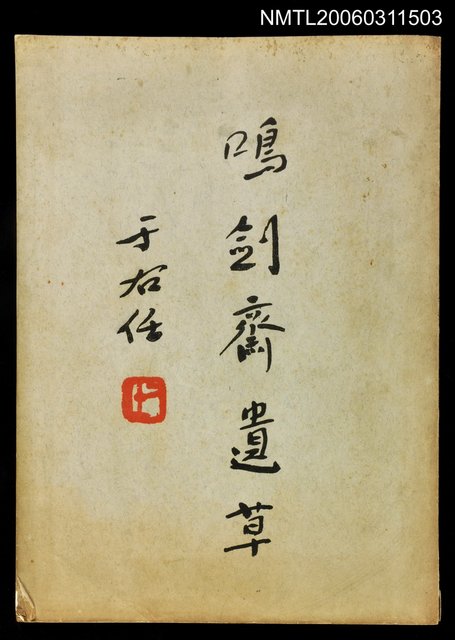 NMTL20060311503
鳴劍齋遺草
于右任